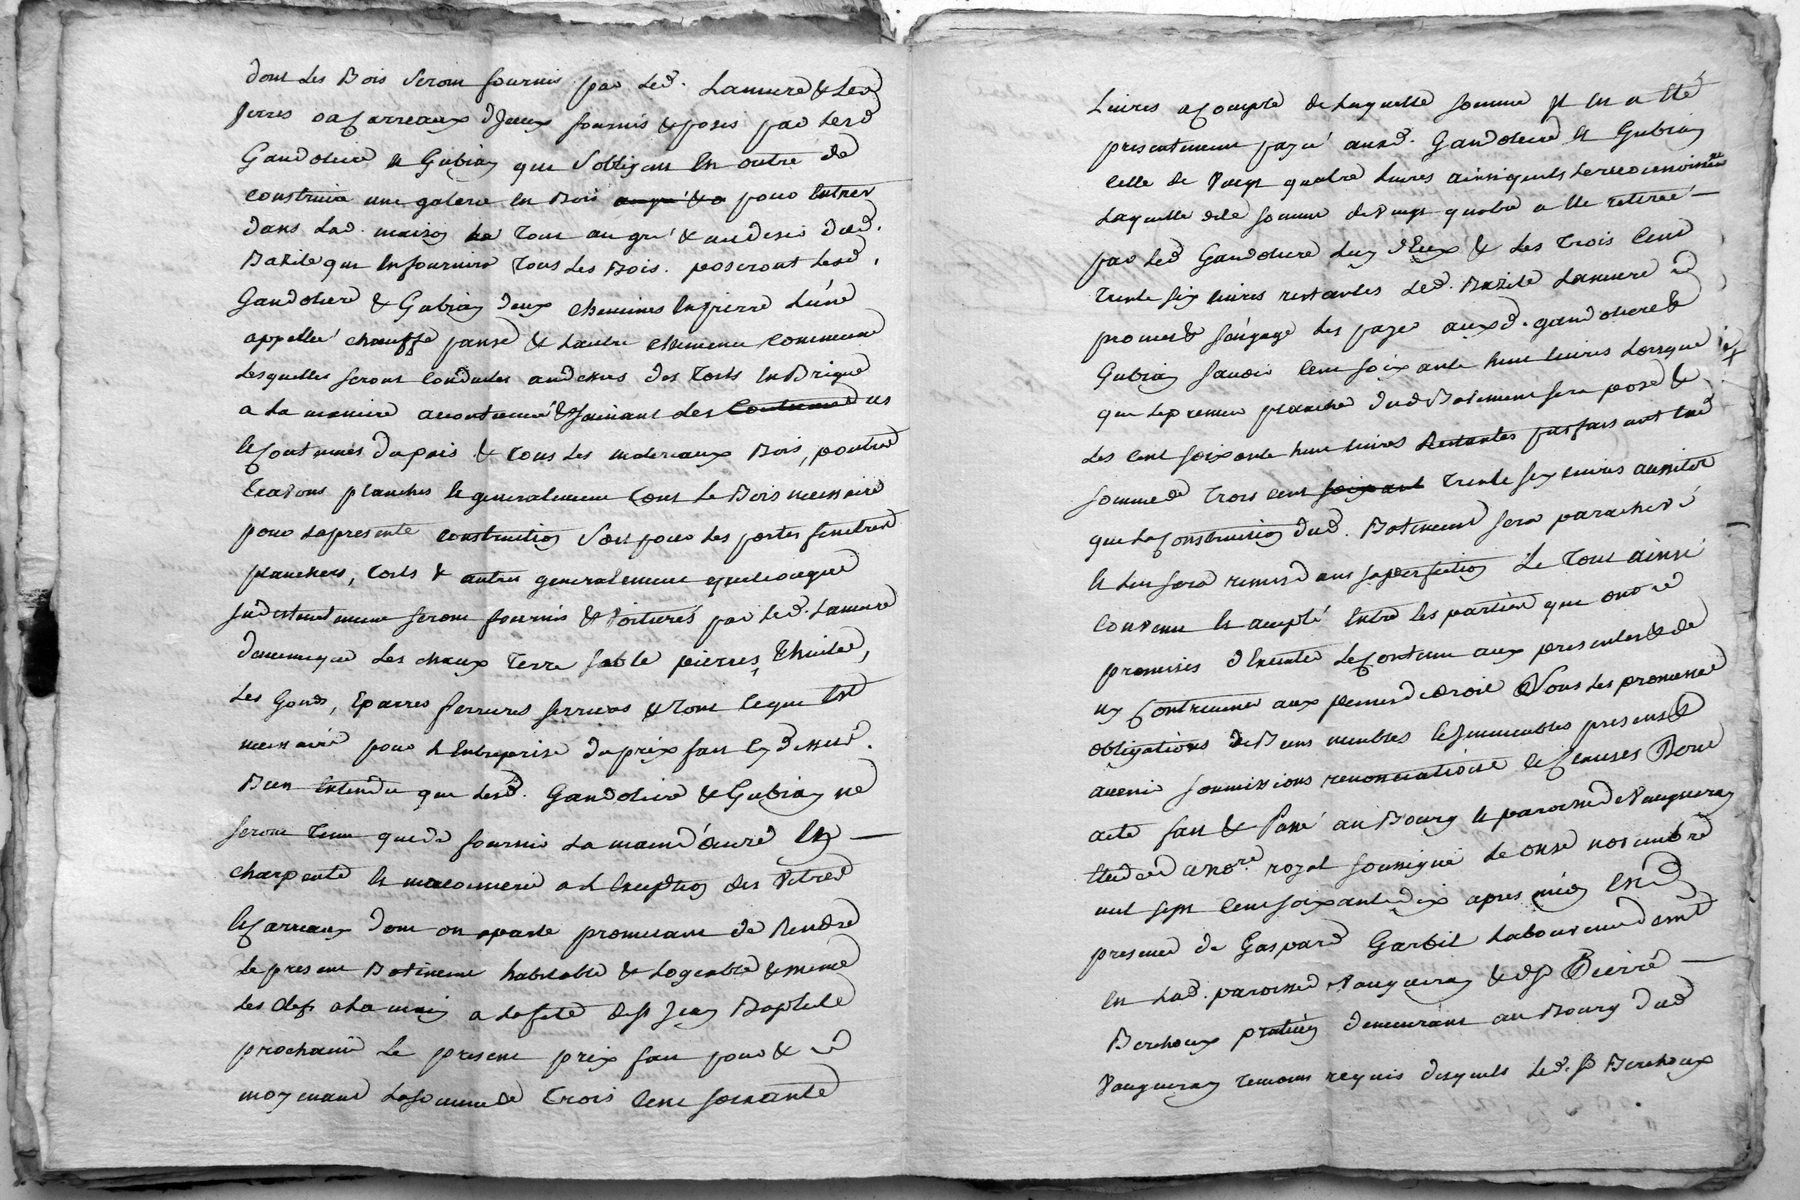 dont les Bois seront fournis par led. Lamure & les
verres ou Carreaux d'Iceux fournis & posés par lesd
Gandoliere et Gubian qui s'obligent en outre de
construire une galerie en Bois pour entrer
dans lad. maison le tout au gré & au desir dud.
Bazile qui en fournira tous les Bois. poseront lesd.
Gandoliere & Gubian deux cheminés en pierre l'une
appellée chauffe panse & l'autre cheminée commune
lesquelles seront conduites au dessus des toits en Brique
a la maniere accoutumée & suivant les us
et coutumes du pais & tous les materiaux Bois, poutre
travons planches et generalement tout le Bois necessaire
pour la presente construction soit pour les portes fenetres
planchers, toits & autres generalement quelconque
indistinctement seront fournis & voiturés par led. Lamure
de meme que les chaux terre sable pierres, thuiles,
les Gonds, Eparres serrures ferrures & tout ce qui est
necessaire pour l'Entreprise du prix fait cy dessus.
Bien entendu que lesd. Gandoliere & Gubian ne
seront tenu que de fournir la main d'œuvre en —
charpente et maconnerie a l'exception des vitres
et Carreaux dont on a parlé promettant de Rendre
le present Batiment habitable & logeable & meme
les clefs a la main a la fete de st Jean Baptiste
prochaine le present prix fait pour & 
moyenant la somme de trois cent soixante
Livres a Compte de laquelle somme il en a été
presentement payé auxd. Gandoliere et Gubian
celle de vingt quatre livres ainsi qu'ils le reconnoissent
laquelle dite somme de vingt quatre a été retirée —
par led Gandoliere l'un d'Eux & les trois cent
trente six livres restantes led. Bazile Lamure
promet & s'engage les payer auxd. gandoliere &
Gubian savoir cent soixante huit livres lorsque
que le premier planché dud Batiment sera posé &
les cent soixante huit livres restantes parfaisant lad
somme de trois cent soixant trente six livres aussitot
que la Construction dud. Batiment sera parachevé
et leur sera remise dans sa perfection le tout ainsi
convenu et accepté Entre les parties qui ont
promises d'Executer le Contenu aux presentes & de
ny Contrevenir aux peines de droit sous les promesse
obligations de Biens meubles et Immeubles presents &
avenir soumissions renonciations et Clauses Dont
acte fait & Passé au Bourg et paroisse de Vaugneray
Etude dud nore. royal soussigné le onze novembre
mil sept cent soixante dix apres midi En
presence de Gaspard Garbit laboureur demt
en lad. paroisse Vaugneray & de sr Pierre —
Berchoux praticien demeurant au Bourg dud
Vaugneray temoins requis desquels led. sr Berchoux